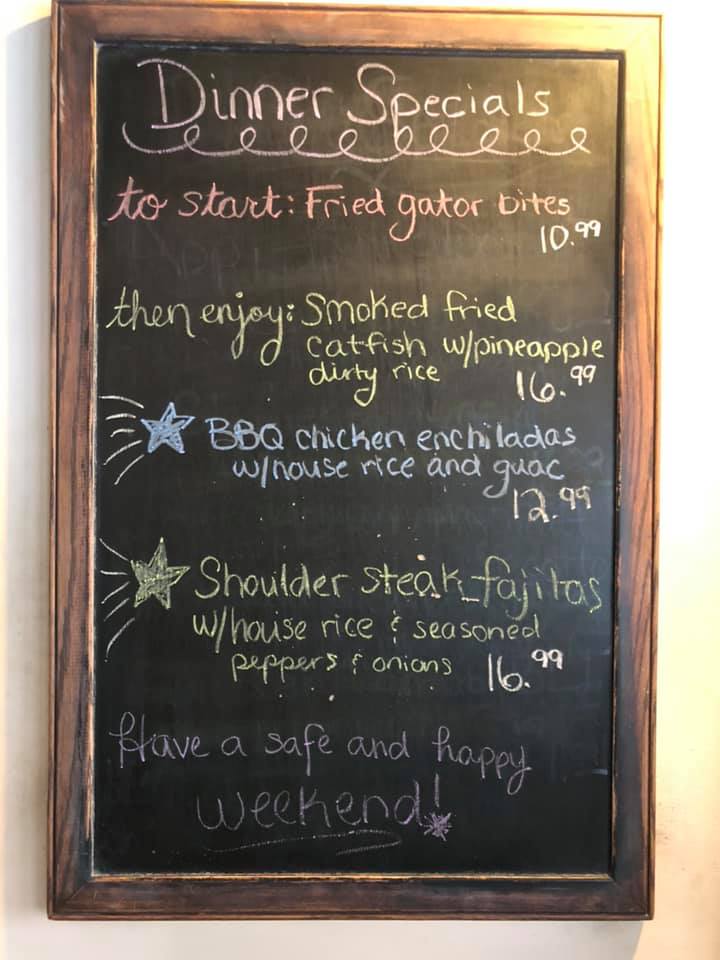 Dinner Specials
to start: Fried gator bites
10.99
then enjoy: Smoked fried
catfish w/pineapple
dirty rice 16.99
BBQ chicken enchiladas
w/house rice and guac
12.99
Shoulder steak fajitas
w/house rice & seasoned
peppers & onions 16.99
Have a safe and happy
weekend!